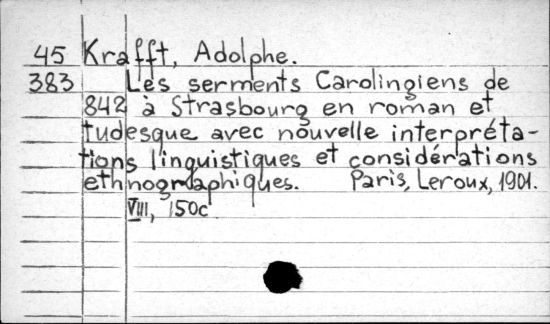 45 Krafft, Adolphe.
383 Les serments Carolingiens de
842 à Strasbourg en roman et
tudesque avec nouvelle interpréta-
tions linguistiques et considérations
ethnographiques. Paris, Leroux, 1901.
VIII, 150c